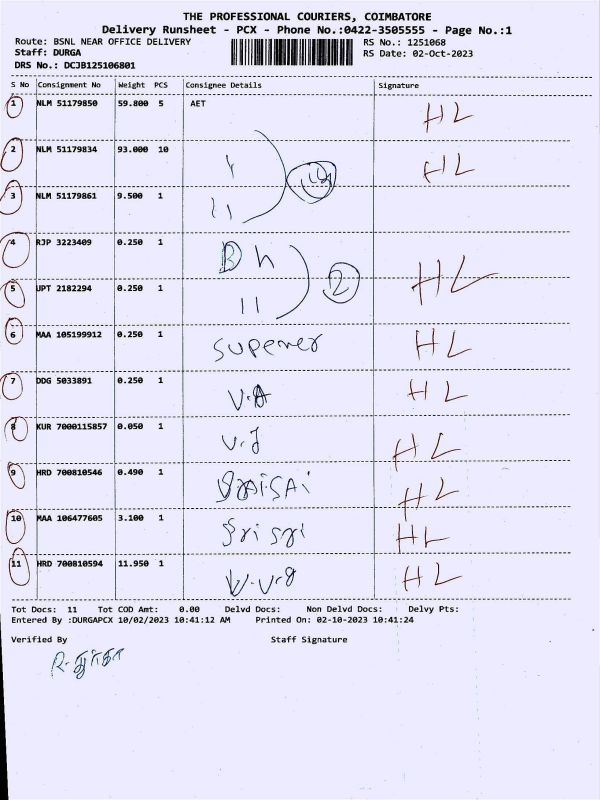 THE PROFESSIONAL COURIERS, COIMBATORE
Delivery Runsheet - PCX - Phone No.:0422-3505555 - Page No.:1
Route: BSNL NEAR OFFICE DELIVERY RS No.: 1251068
Staff: DURGA RS Date: 02-Oct-2023
DRS No.: DCJB125106801
S No Consignment No Weight PCS Consignee Details Signature
1 NLM 51179850 59.800 5 AET HL
2 NLM 51179834 93.000 10 HL
3 NLM 51179861 9.500 1 11
4 RJP 3223409 0.250 1 Bh
5 UPT 2182294 0.250 1 11 2 HL
6 MAA 105199912 0.250 1 HL
7 DDG 5033891 0.250 1 V.A HL
8 KUR 7000115857 0.050 1 V.J HL
9 HRD 700810546 0.490 1 HL
10 MAA 106477605 3.100 1 Sri Sri HL
11 HRD 700810594 11.950 1 HL
Tot Docs: 11 Tot COD Amt: 0.00 Delvd Docs: Non Delvd Docs: Delvy Pts:
Entered By :DURGAPCX 10/02/2023 10:41:12 AM Printed On: 02-10-2023 10:41:24
Verified By Staff Signature